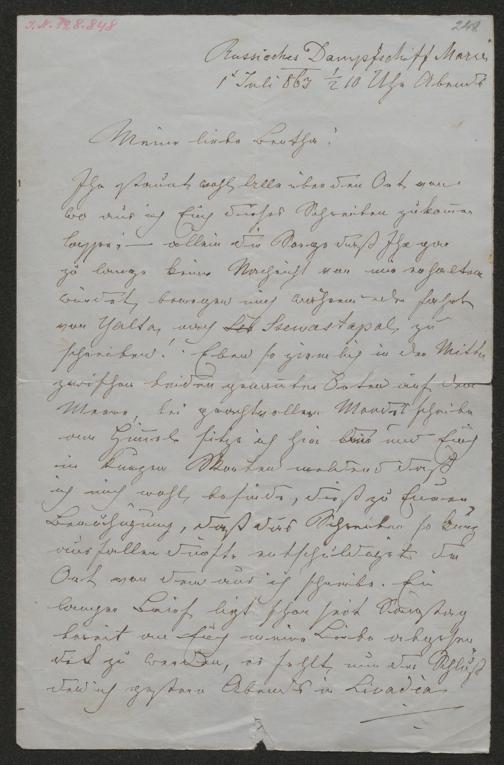 J.N. 128.848
248
Russisches Dampfschiff Marie
1t Juli 863 1/2 10 Uhr Abends
Meine liebe Bertha!
Ihr staunt wohl Alle über den Ort von
wo aus ich Euch dieses Schreiben zukommen
lasse! — allein die Sorge daß Ihr gar
zu lange keine Nachricht von mir erhalten
würdet, bewegen mich während der Fahrt
von Yalta, nach Ssewastapol, zu
schreiben! Eben so ziemlich in der Mitte
zwischen beiden genannten Orten auf dem
Meere, bei prachtvoller Mondesscheibe
am Himmel sitze ich hier und Euch
in kurzen Worten meldend daß
ich mich wohl befinde, dieß zu Eurer
Beruhigung, daß das Schreiben so kurz
ausfallen dürfte entschuldigt der
Ort von dem aus ich schreibe. Ein
langer Brief liegt schon seit Samstag
bereit an Euch meine Liebe abgesen
det zu werden, es fehlt nur der Schluß
den ich gestern Abends in Livadia